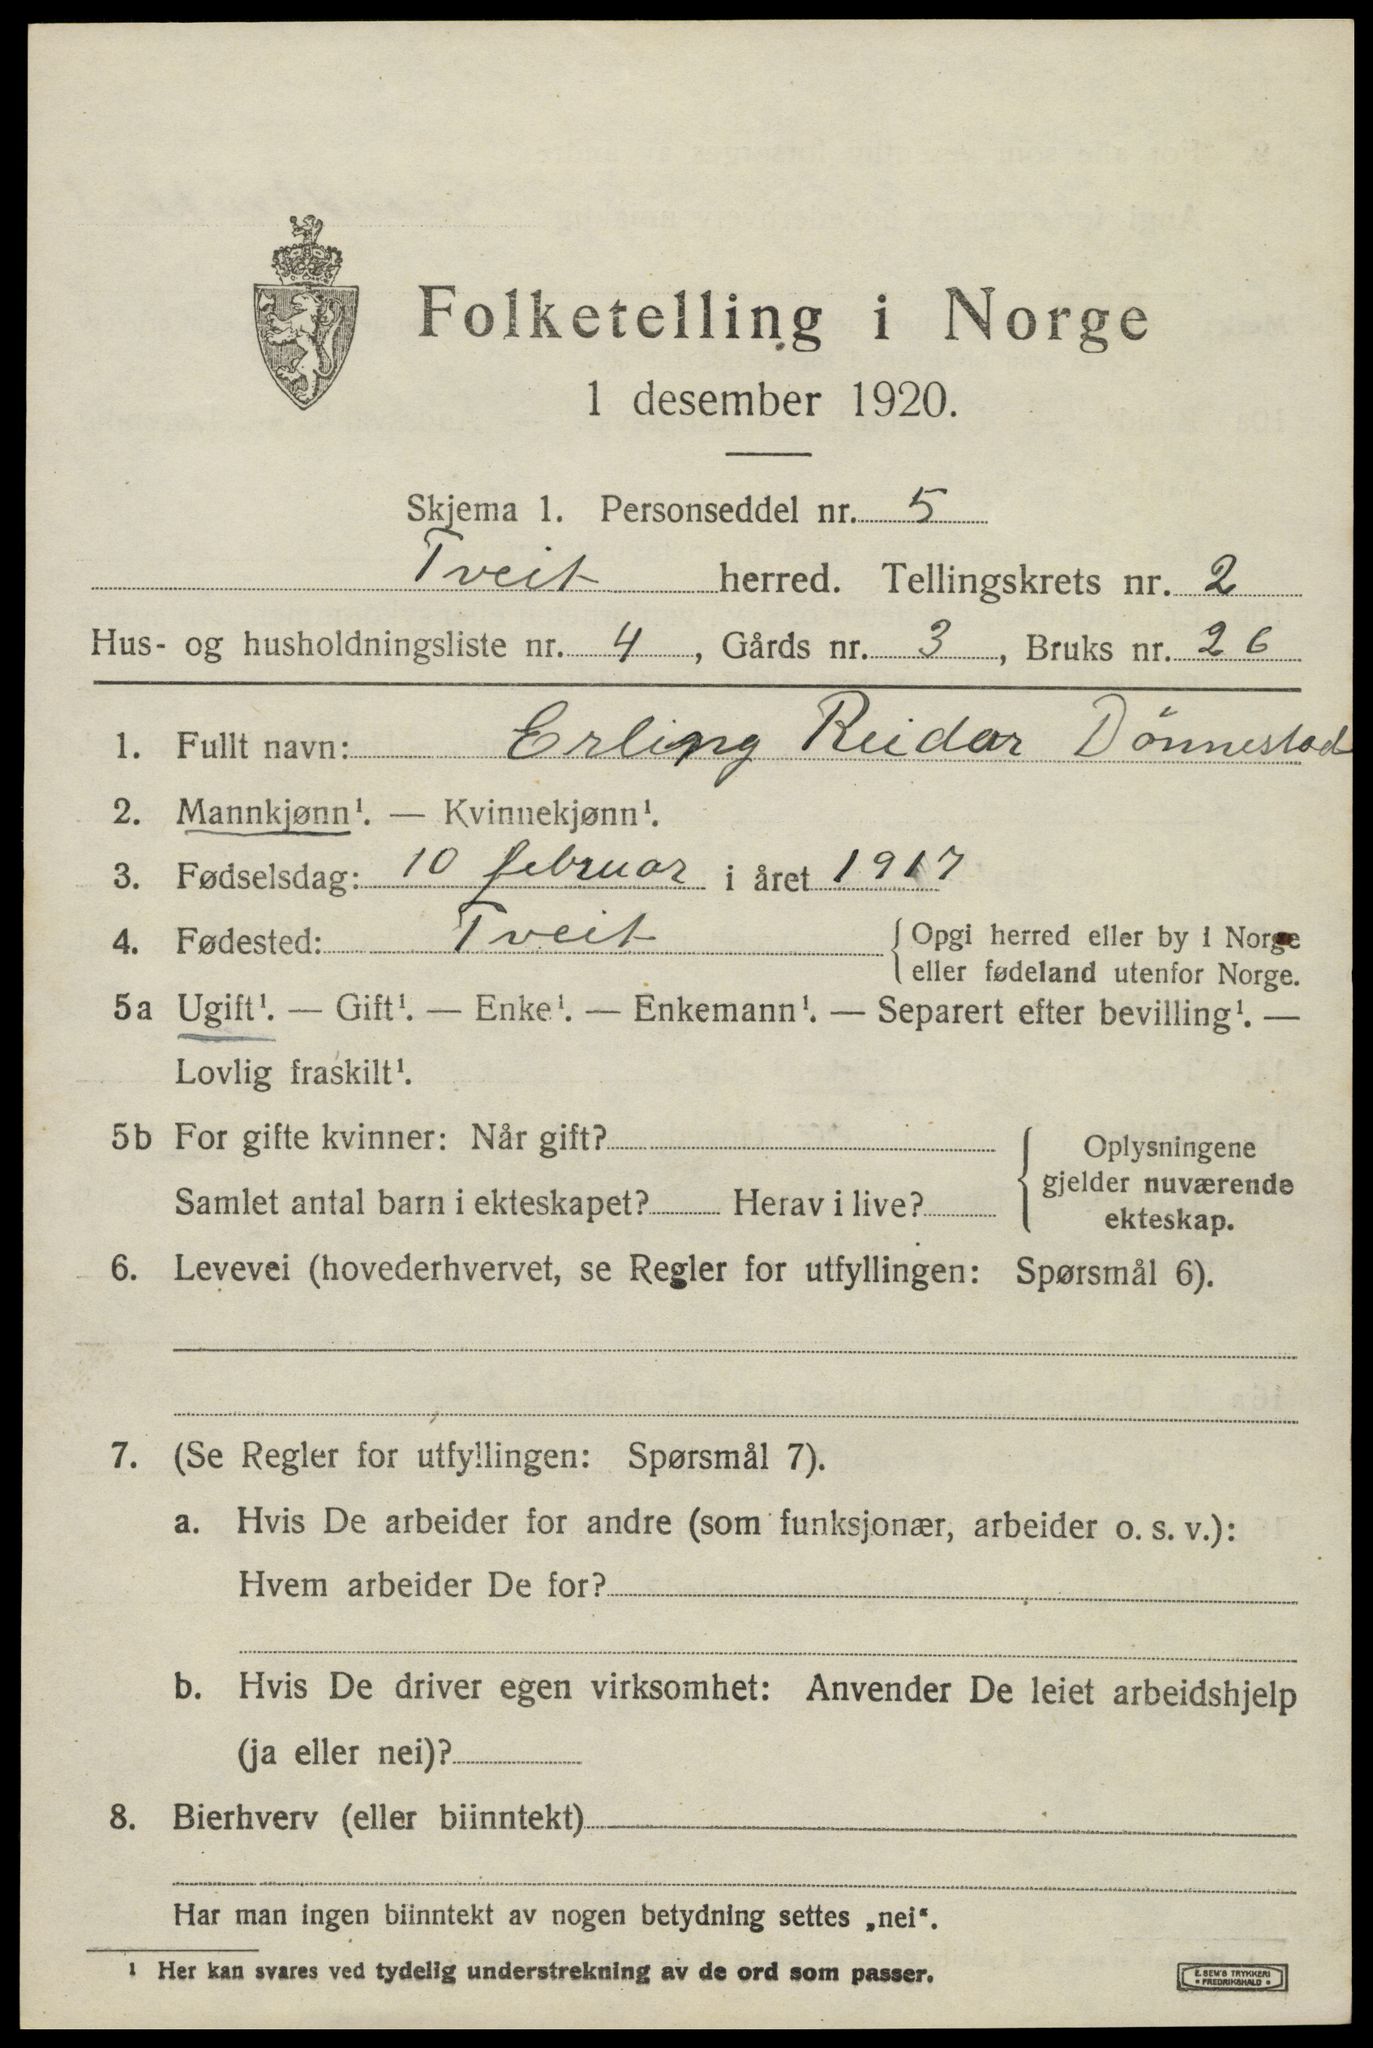 Folketelling i Norge
1 desember 1920.
Skjema 1. Personseddel nr. 5
Tveit herred. Tellingskrets nr. 2
Hus- og husholdningsliste nr. 4, Gårds nr. 3, Bruks nr. 26
1. Fullt navn: Erling Reidar Dönnestad
2. Mannkjønn¹. — Kvinnekjønn¹.
3. Fødselsdag: 10 februar i året 1917
4. Fødested: Tveit { Opgi herred eller by i Norge
eller fødeland utenfor Norge.
5a Ugift¹. — Gift¹. — Enke¹. — Enkemann¹. — Separert efter bevilling¹. —
Lovlig fraskilt¹.
5b For gifte kvinner: Når gift?
Samlet antal barn i ekteskapet? Herav i live?
{ Oplysningene
gjelder nuværende
ekteskap.
6. Levevei (hovederhvervet, se Regler for utfyllingen: Spørsmål 6).
7. (Se Regler for utfyllingen: Spørsmål 7).
a. Hvis De arbeider for andre (som funksjonær, arbeider o. s. v.):
Hvem arbeider De for?
b. Hvis De driver egen virksomhet: Anvender De leiet arbeidshjelp
(ja eller nei)?
8. Bierhverv (eller biinntekt)
Har man ingen biinntekt av nogen betydning settes „nei“.
¹ Her kan svares ved tydelig understrekning av de ord som passer.
E. SEM'S TRYKKERI
• FREDRIKSHALD •